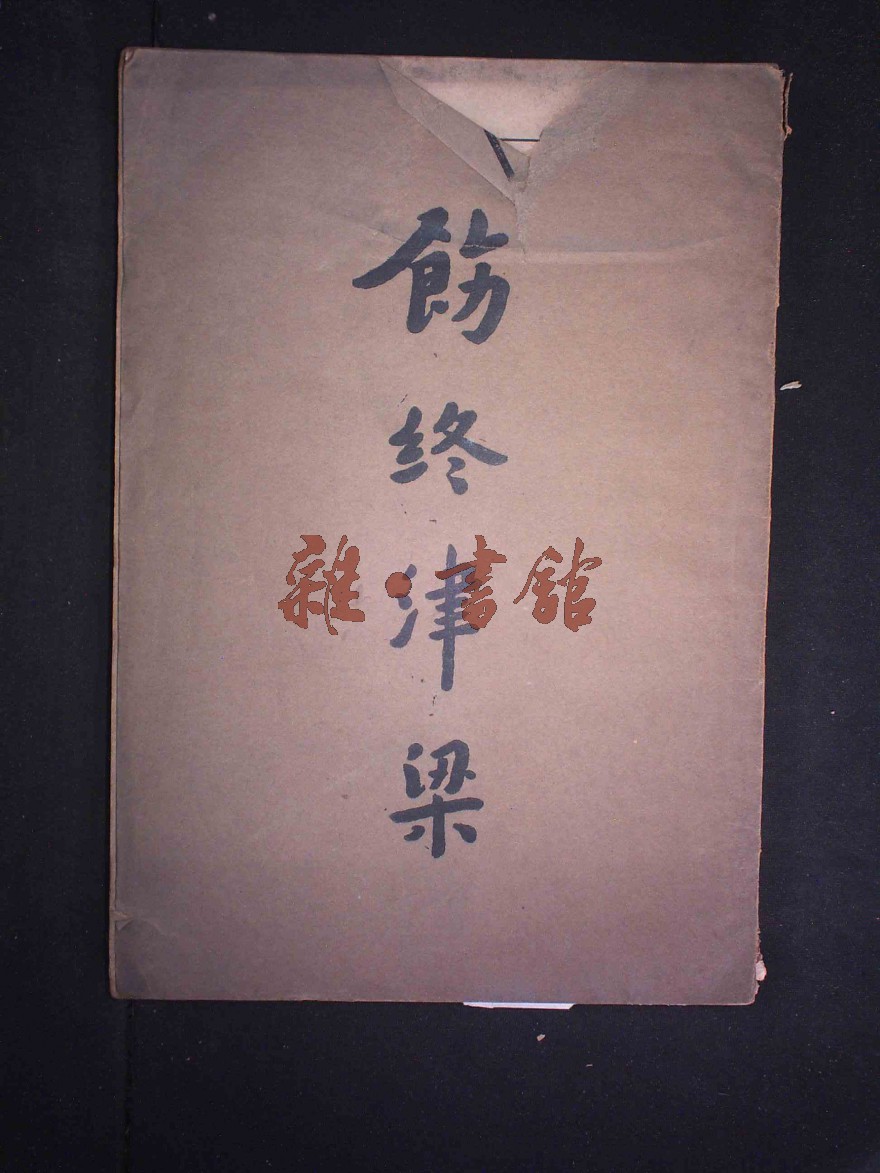 飭終津梁
雜·書館